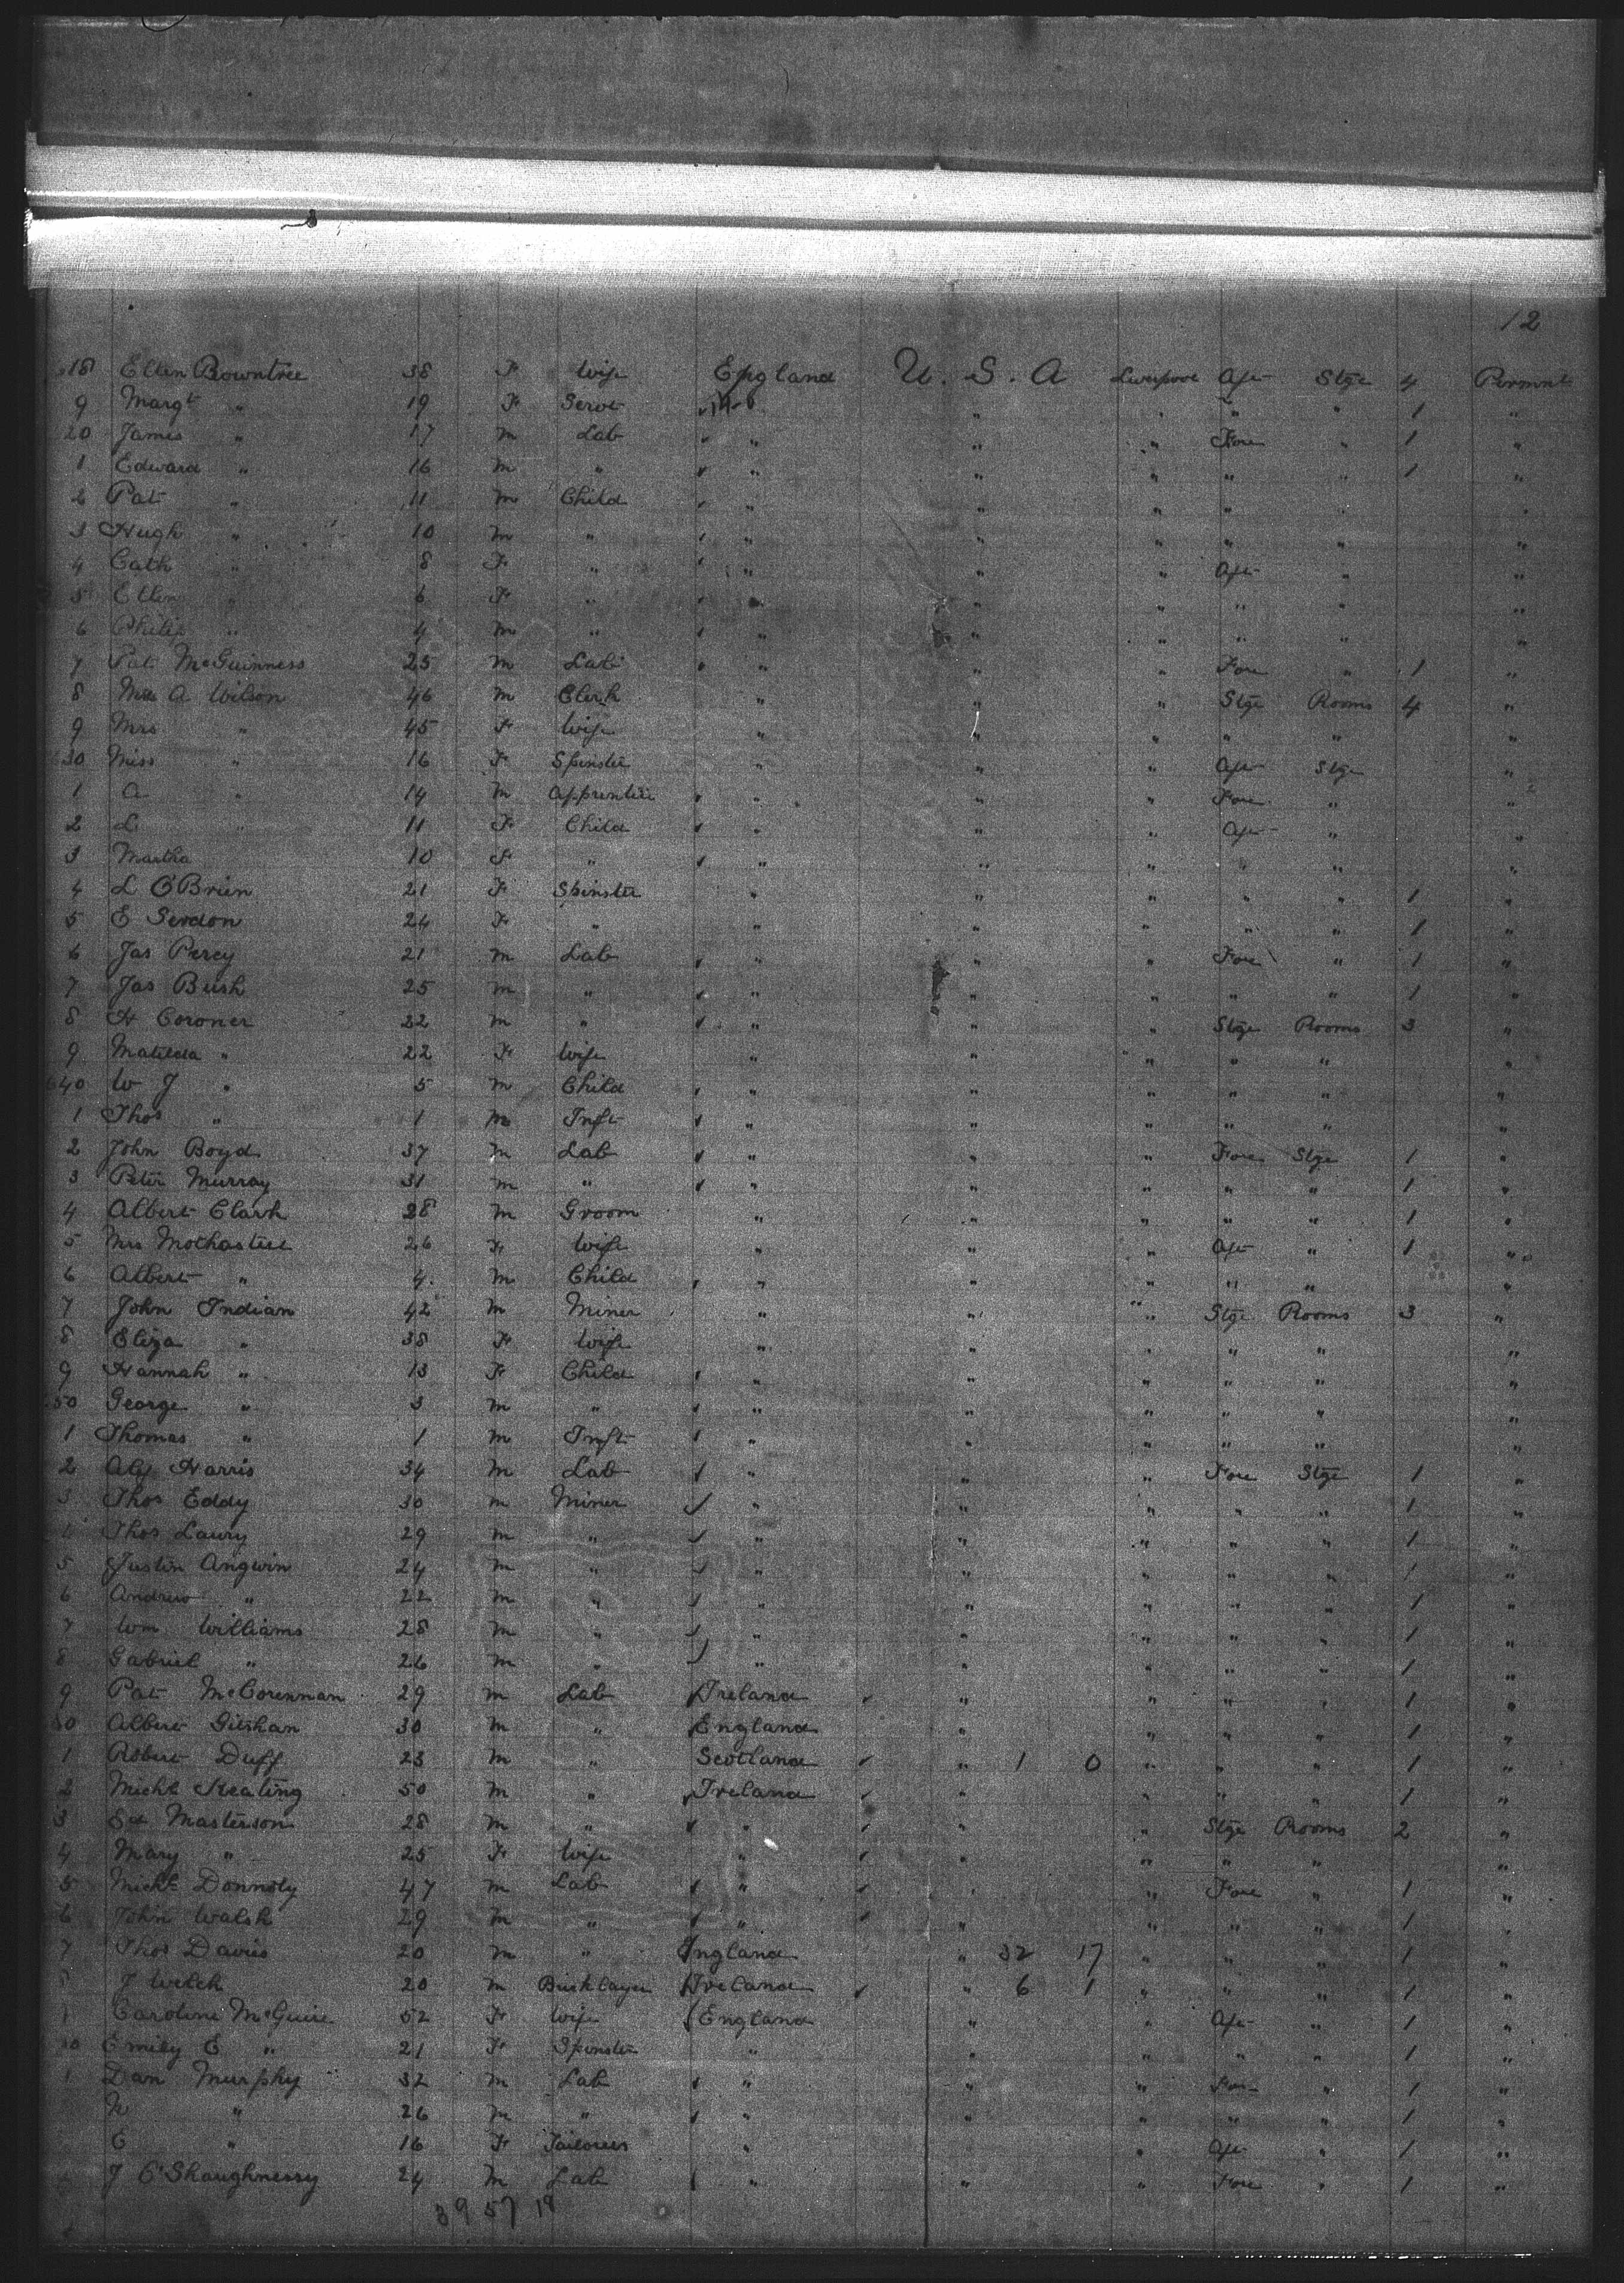 12
18 Ellen Rowntree 38 F Wife England U. S. A Liverpool Aft Stge 4 Prmnt
9 Margt " 19 F Servt " " " " " 1 "
20 James " 17 m Lab " " " Fore " 1 "
1 Edward " 16 m " " " " " " 1 "
2 Pat " 11 m Child " " " " " "
3 Hugh " 10 m " " " " " " "
4 Cath " 8 F " " " " Aft " "
5 Ellen " 6 F " " " " " " "
6 Philip " 4 m " " " " " " "
7 Pat McGuinness 25 m Lab " " " Fore " 1 "
8 A Wilson 46 m Clerk " " " Stge Rooms 4 "
9 Mrs " 45 F Wife " " " " " "
630 Miss " 16 F Spinster " " " Aft Stge "
1 A " 14 m Apprentice " " " Fore " "
2 L " 11 F Child " " " Aft " "
3 Martha 10 F " " " " " " "
4 L O'Brien 21 F Spinster " " " " " 1 "
5 E Serdon 24 F " " " " " " 1 "
6 Jas Percy 21 m Lab " " " Fore " 1 "
7 Jas Bush 25 m " " " " " " 1 "
8 H Coroner 22 m " " " " Stge Rooms 3 "
9 Matilda " 22 F Wife " " " " " "
640 W J " 5 m Child " " " " " "
1 Thos " 1 m Inft " " " " " "
2 John Boyd 37 m Lab " " " Fore Stge 1 "
3 Peter Murray 31 m " " " " " " 1 "
4 Albert Clark 28 m Groom " " " " " 1 "
5 Mrs 26 F Wife " " " Aft " 1 "
6 Albert " 4 m Child " " " " " "
7 John Indian 42 m Miner " " " Stge Rooms 3 "
8 Eliza " 38 F Wife " " " " " "
9 Hannah " 13 F Child " " " " " "
50 George " 3 m " " " " " " "
1 Thomas " 1 m Inft " " " " " "
2 Alf Harris 34 m Lab " " " Fore Stge 1 "
3 Thos Eddy 30 m Miner " " " " " 1 "
4 Thos Laury 29 m " " " " " " 1 "
5 Justin Angwin 24 m " " " " " " 1 "
6 Andrew " 22 m " " " " " " 1 "
7 Wm Williams 28 m " " " " " " 1 "
8 Gabriel " 26 m " " " " " " 1 "
9 Pat 29 m Lab Ireland " " " 1 "
60 Albert 30 m " England " " " " 1 "
1 Robert Duff 23 m " Scotland " 1 0 " " " 1 "
2 Michl Keating 50 m " Ireland " " " " 1 "
3 Ed Masterson 28 m " " " " Stge Rooms 2 "
4 Mary " 25 F Wife " " " " " "
5 Michl Donnoly 47 m Lab " " Fore " 1 "
6 John Walsh 29 m " " " " " " 1 "
7 Thos Davis 20 m " England " 32 17 " " " 1 "
8 J Welch 20 m Bricklayer Ireland " 6 1 " " " 1 "
9 Caroline McGuire 52 F Wife England " " Aft " 1 "
70 Emily E " 21 F Spinster " " " " 1 "
1 Dan Murphy 32 m Lab " " " Fore " 1 "
N " 26 m " " " " " " 1 "
E " 16 F Tailoress " " Aft " 1 "
J O'Shaughnessy 24 m Lab " " " Fore " 1 "
39 57 18